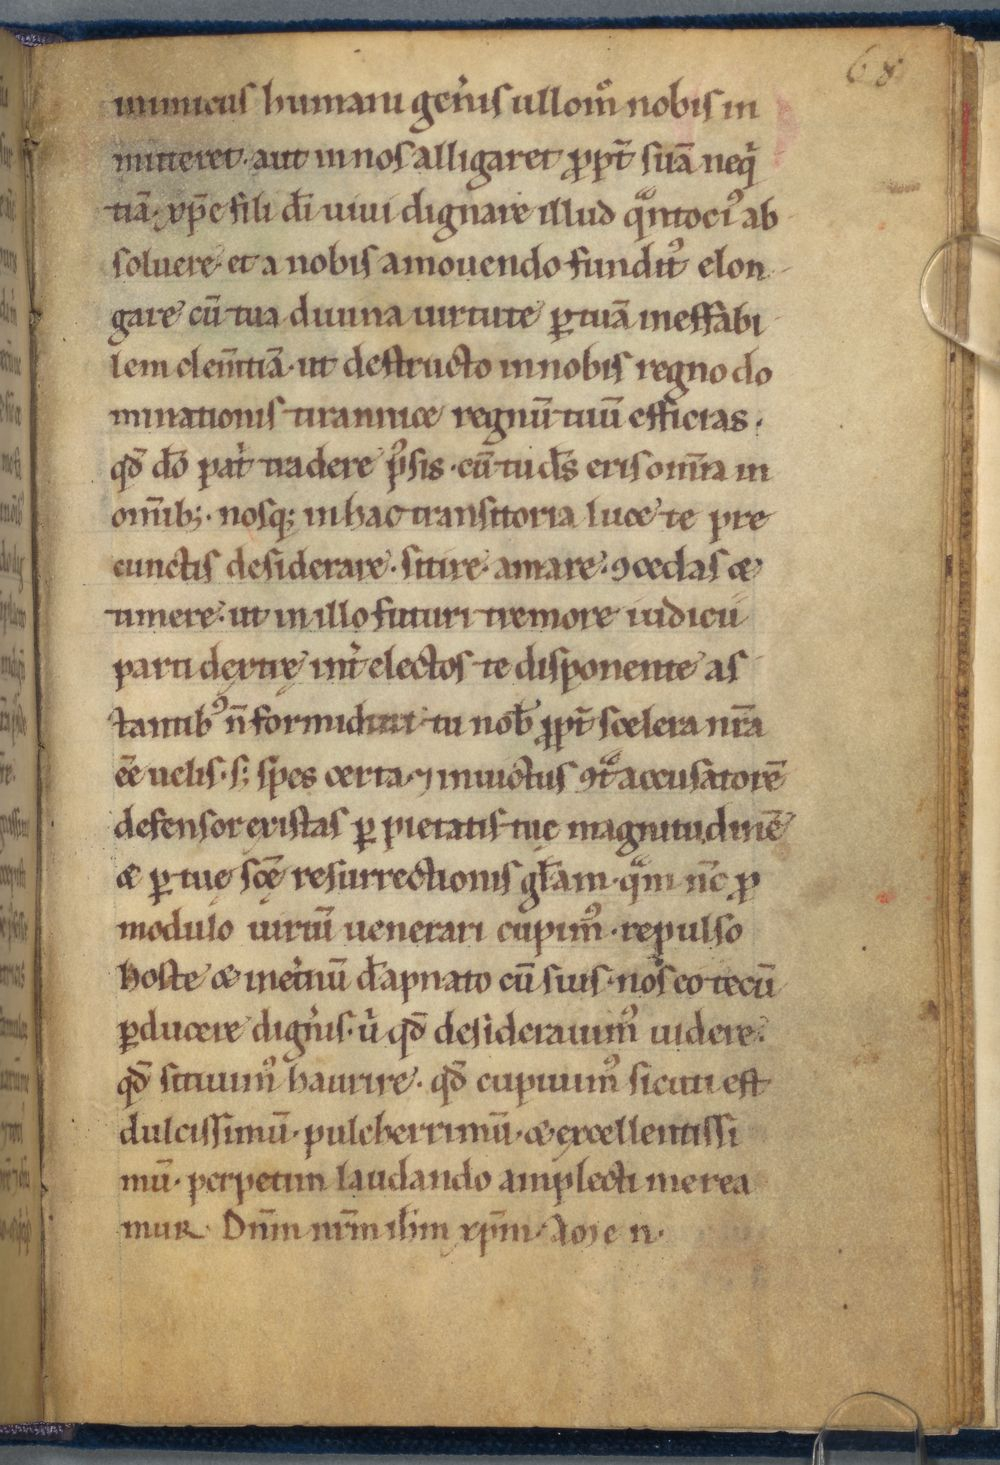 68
inimicus humani gen̾is ullom̊ nobis in
mitteret · aut in nos alligaret ꝓpt̄ suā neq̇
tiā · xp̄e fili dī uiui dignare illud qͣntociꝰ ab
soluere · et a nobis amouendo funditꝰ elon
gare cū tua diuina uirtute ꝑ tuā ineffabi
lem clem̄tiā · ut destructo in nobis regno do
minationis tirannicę regnū tuū efficias ·
qđ dō pat̾ tradere p̾sis · cū tu d̄s eris om̄ia in
om̄ib; · nosq; in hac transitoria luce te pre
cunctis desiderare · sitire · amare · ꝯcedas &
timere · ut in illo futuri tremore iudicii
parti dextrę int̾ electos te disponente as
tantibꝰ n̄ formidini tu nob̄ ꝓpt̄ scelera nr̄a
ēē uelis · s; spes certa · ⁊ inuictus ꝯtͣ accusatorē
defensor existas ꝑ pietatis tuę magnitudinē
& ꝑ tuę scę̄ resurrectionis gl̄am · qͣm nc̄ ꝓ
modulo uiriū uenerari cupimꝰ · repulso
hoste & inet̾nū dāpnato cū suis · nos eo tecū
ꝑducere dign̾is · u̇ qđ desiderauimꝰ uidere ·
qđ sitiuimꝰ haurire · qđ cupiuimꝰ sicuti est
dulcissimū · pulcherrimū · & excellentissi
mū · perpetim laudando amplecti merea
mur Dn̄m nr̄m ih̄m xp̄m · Amen ·